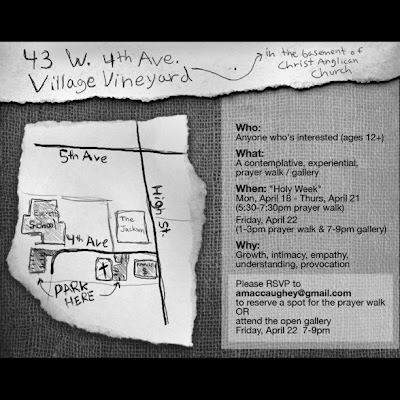 43 W. 4th Ave.
Village Vineyard
in the basement of
Christ Anglican
Church
5th Ave
High St.
Everett
School
The
Jackson
4th Ave
PARK
HERE
Who:
Anyone who's interested (ages 12+)
What:
A contemplative, experiential,
prayer walk / gallery
When: "Holy Week"
Mon, April 18 - Thurs, April 21
(5:30-7:30pm prayer walk)
Friday, April 22
(1-3pm prayer walk & 7-9pm gallery)
Why:
Growth, intimacy, empathy,
understanding, provocation
Please RSVP to
amaccaughey@gmail.com
to reserve a spot for the prayer walk
OR
attend the open gallery
Friday, April 22 7-9pm